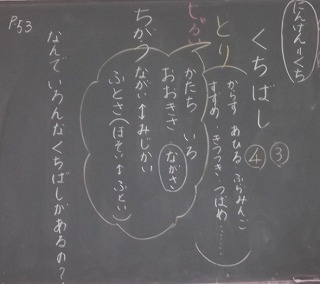 にんげん＝くち
くちばし ④ ③
とり
からす あひる ふらみんご
すずめ・きつつき・つばめ……
かたち いろ
おおきさ ながさ
ちがう
ながい↔みじかい
ふとさ（ほそい↔ふとい）
なんでいろんなくちばしがあるの？
P53